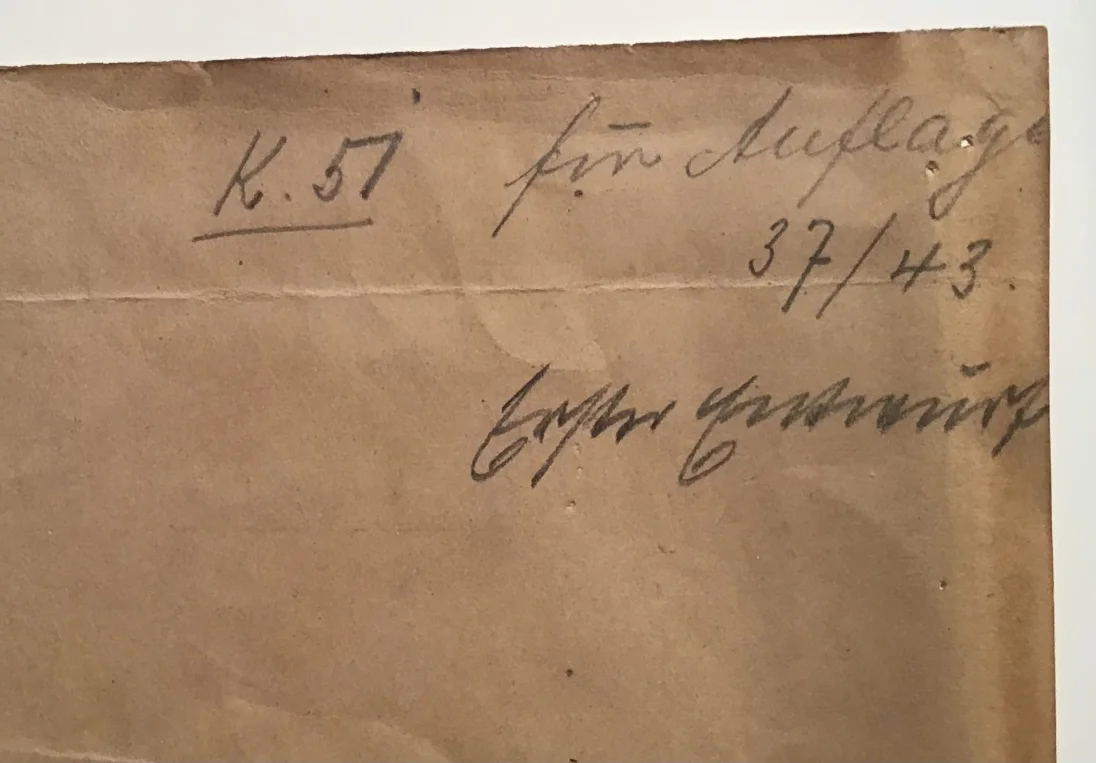 K. 51 für Auflage
37/43.
Erster Entwurf